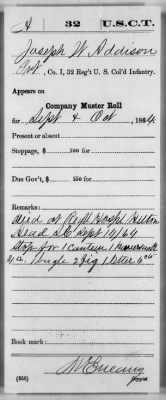 A 32 U.S.C.T.
Joseph W. Addison
Pvt, Co. I, 32 Reg't U. S. Col'd Infantry.
Appears on
Company Muster Roll
for Sept & Oct, 1864.
Present or absent
Stoppage, $ 100 for
Due Gov't, $ 100 for
Remarks:
died at Regt Hospl Hilton
Head S.C. Sept 14/64
Stop for 1 Canteen 1 Haversack
1 bugle 2 fig 1 letter 6cts
Book mark:
(858) Copyist.